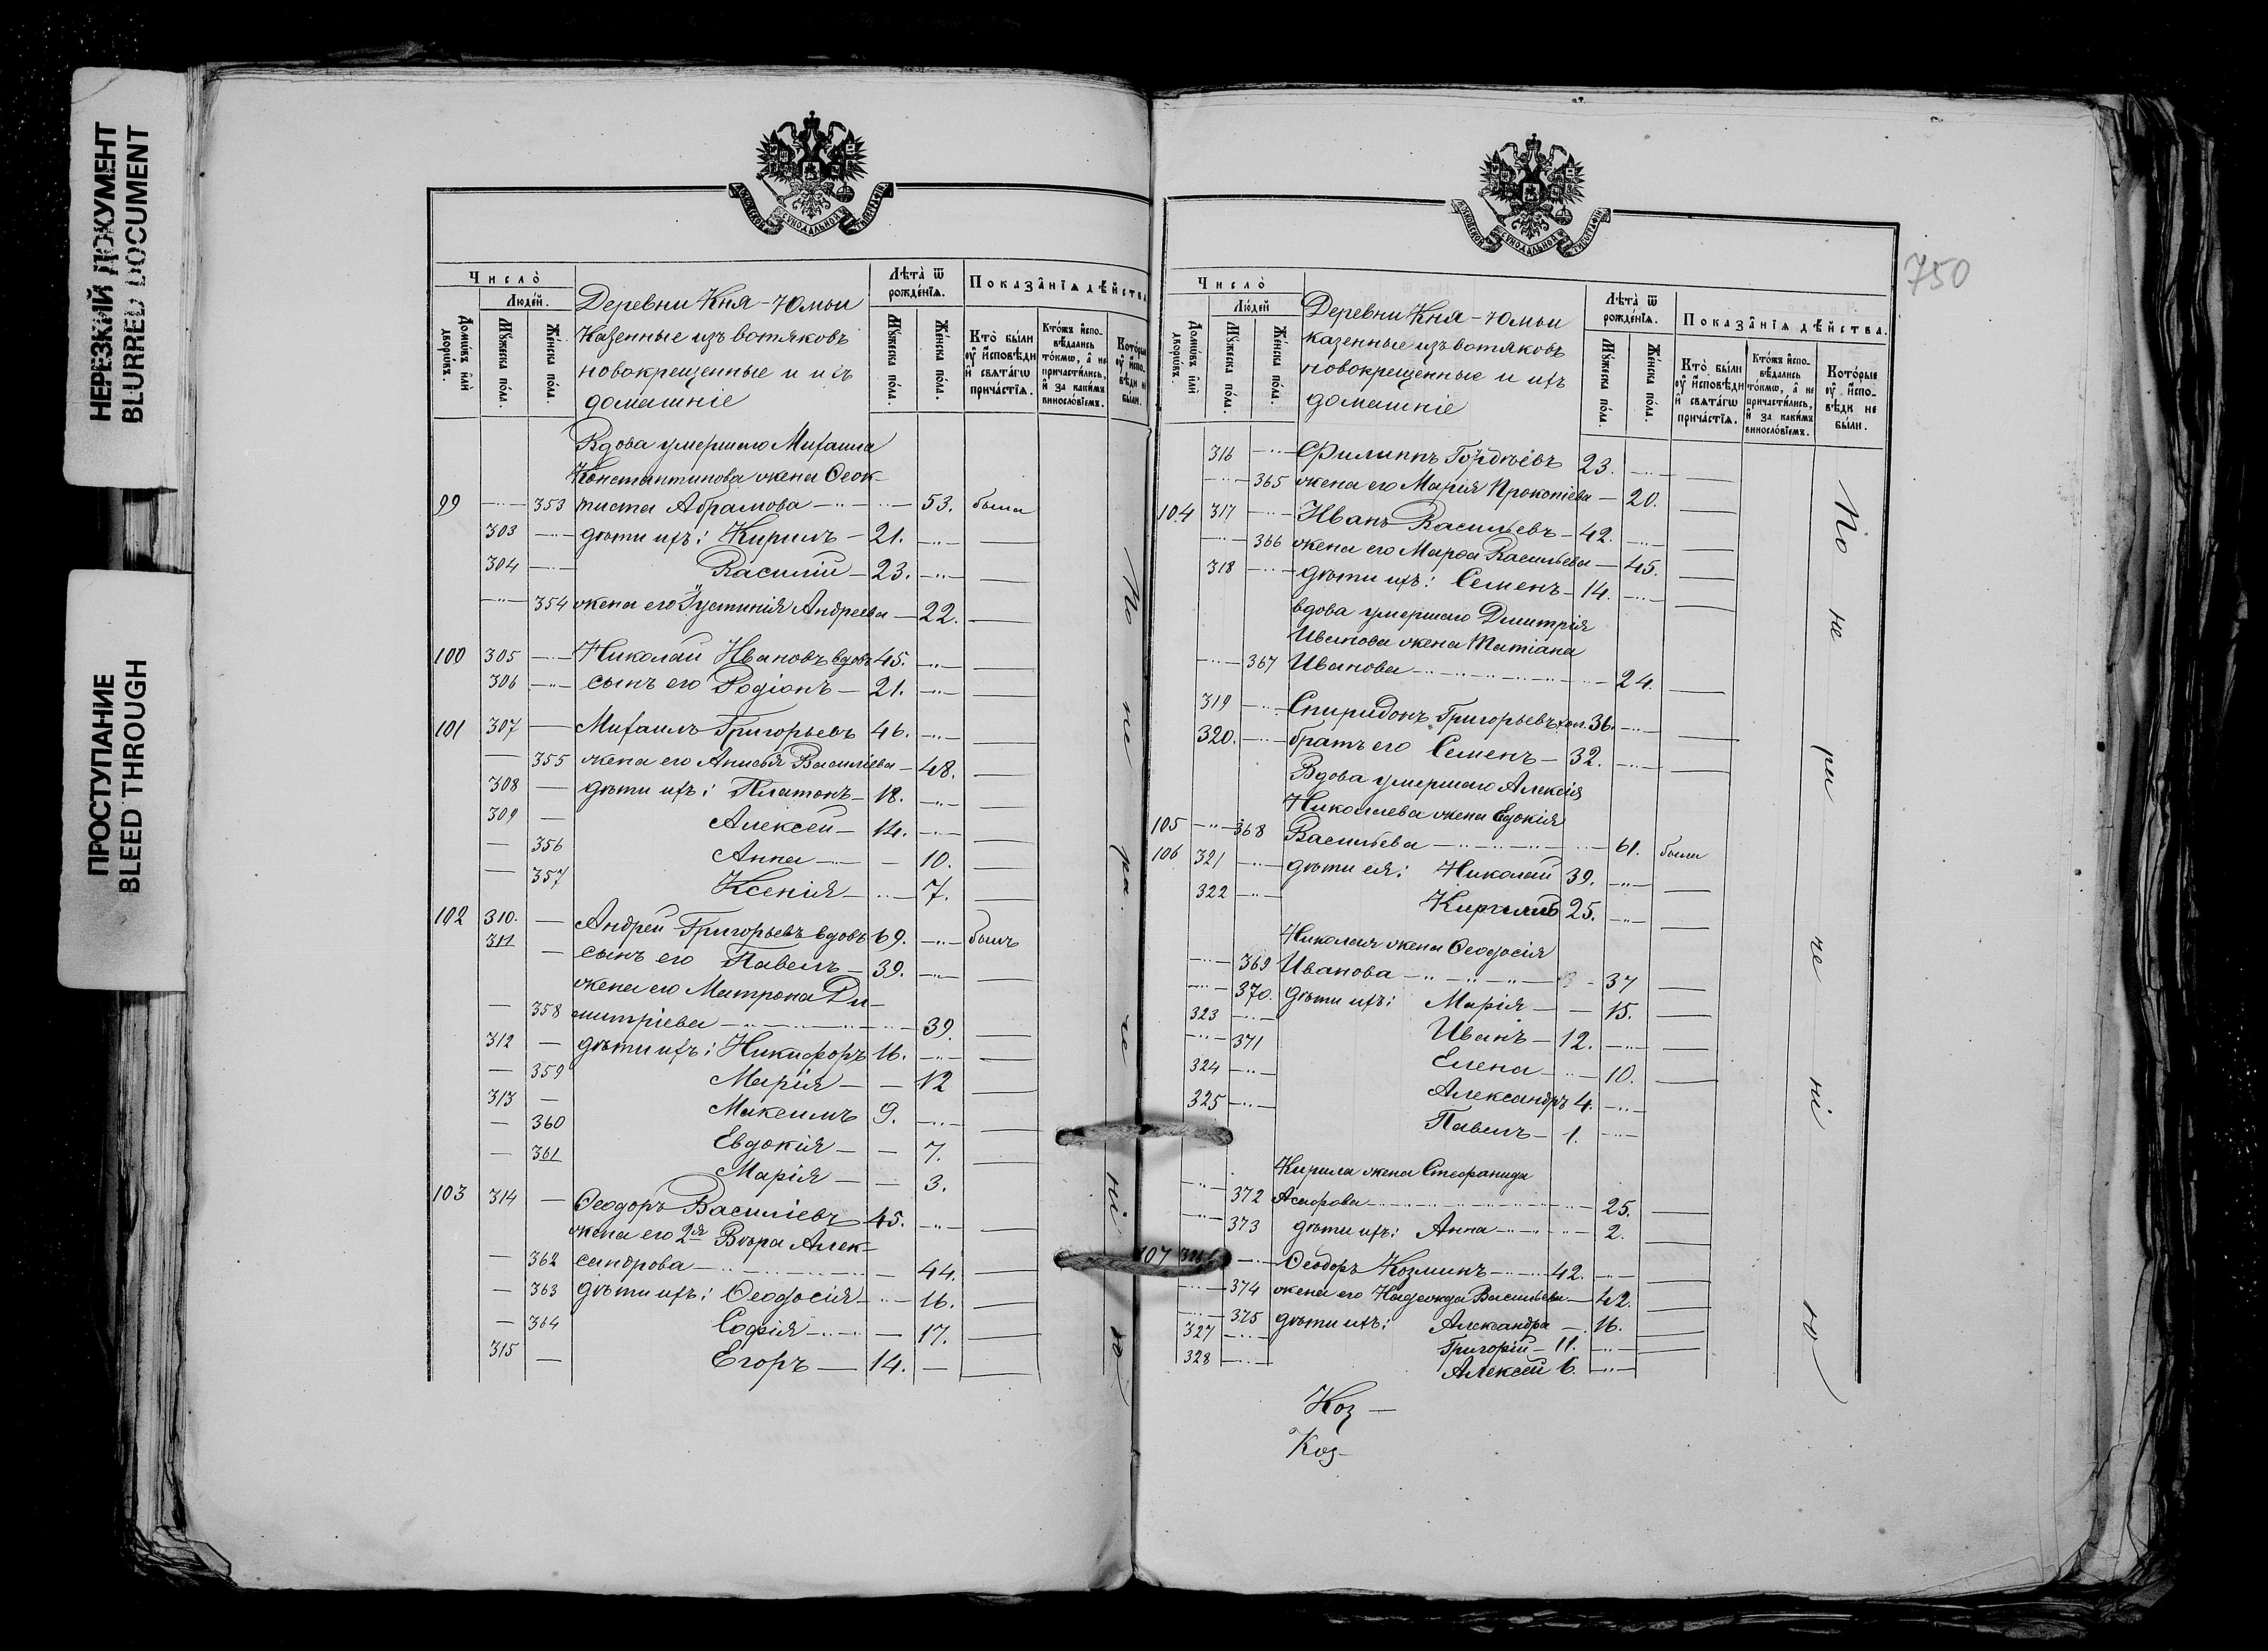 НЕРЕЗКИЙ ДОКУМЕНТ
BLURRED DOCUMENT
ПРОСТУПАНИЕ
BLEED THROUGH
МОСКОВСКОЙ СѴНОДАЛЬНОЙ ТИПОГРАФІИ
Число̀
Людей.
Домѡвъ и҆лѝ дворѡвъ.
Мꙋжеска пола.
Женска пола.
Деревни Кня-Юмьи
Казенные изъ вотяковъ
новокрещенные и ихъ
домашніе
Лѣта ѿ рожденїѧ.
Мꙋжеска пола.
Женска пола.
Показанїѧ дѣйства
Кто были ᲂу҆ и҆сповѣди и҆ свѧтагѡ причастїѧ.
Ктожъ и҆сповѣдались токмѡ, а҆ не причастились, и҆ за какимъ винословїемъ.
Которые ᲂу҆ и҆сповѣди не были.
Вдова умершаго Михаила
Константинова жена Ѳеок-
99 —··— 353 тиста Абрамова —··— 53. была
303 —··— дѣти ихъ: Кирилъ — 21. —··— —
304 —··— Василій — 23. —··— —
—··— 354 жена его Іустинія Андреева — 22. —
100 305 —··— Николай Ивановъ вдовъ 45. —··— —
306 —··— сынъ его Родіонъ — 21. —··— —
101 307 — Михаилъ Григорьевъ 46. —··— —
— 355 жена его Анисья Василіева — 48. —
308 — дѣти ихъ: Платонъ — 18. —··— —
309 — Алексей — 14. —··—
— 356 Анна —··— — 10.
— 357 Ксенія — ··— 7. —
102 310. — Андрей Григорьевъ вдовъ 69. —··— былъ
311 — сынъ его Павелъ — 39. —··— —
жена его Матрона Ди-
— 358 митріева —··— 39. —
312 — дѣти ихъ: Никифоръ 16. —··— —
— 359 Марія — — 12 —
313 — Максимъ 9. —··— —
— 360 Евдокія — — 7. —
— 361 Марія — — 3.
103 314 — Ѳеодоръ Василіевъ 45. —··— —
жена его 2я Вѣра Алек-
— 362 сандрова —··— — 44. —
— 363 дѣти ихъ: Ѳеодосія — ··— 16. —
— 364 Софія —··— — 17. —
315 — Егоръ — 14. — —
По не ра че ні ю
750
МОСКОВСКОЙ СѴНОДАЛЬНОЙ ТИПОГРАФІИ
Число̀
Людей
Домѡвъ и҆лѝ дворѡвъ.
Мꙋжеска пола.
Женска пола.
Деревни Кня-Юмьи
казенные изъ вотяковъ
новокрещенные и ихъ
домашніе
Лѣта ѿ рожденїѧ.
Мꙋжеска пола.
Женска пола.
Показанїѧ дѣйства.
Кто были ᲂу҆ и҆сповѣди и҆ свѧтагѡ причастїѧ.
Ктожъ и҆сповѣдались токмѡ, а҆ не причастились, и҆ за какимъ винословїемъ.
Которые ᲂу҆ и҆сповѣди не были.
316 —··— Филиппъ Гордѣевъ 23. —··— —
—··— 365 жена его Марія Прокопіева — 20. —
104 317 —··— Иванъ Васильевъ — 42. —··— —
—··— 366 жена его Марѳа Васильева — 45. —
318 —··— дѣти ихъ: Семенъ — 14. —··— —
вдова умершаго Димитрія
Иванова жена Татіана
—··— 367 Иванова —··— 24. —
319 —··— Спиридонъ Григорьевъ хол. 36. —··— —
320. —··— братъ его Семенъ — 32. —··— —
Вдова умершаго Алексія
Николаева жена Евдокія
105 —··— 368 Васильева —··— 61. была
106 321 —··— дѣти ея: Николай 39. —··— —
322 —··— Кириллъ 25. —··— —
Николая жена Ѳеодосія
—··— 369 Иванова —··— 37 —
—··— 370. дѣти ихъ: Марія — — 15. —
323 —··— Иванъ — 12. —··— —
—··— 371 Елена — ··— 10. —
324 —··— Александръ 4. —··—
325 —··— Павелъ — 1. —··—
Кирила жена Стефанида
—··— 372 —··— 25. —
—··— 373 дѣти ихъ: Анна —··— 2. —
107 326 —··— Ѳеодоръ Козминъ —··— 42. —··— —
—··— 374 жена его Надежда Васильева — 42. —
—··— 375 дѣти ихъ: Александра — 16. —
327 —··— Григорій — 11. —··— —
328 —··— Алексей 6. —··—
По не ра че ні ю
Коз —
Коз-